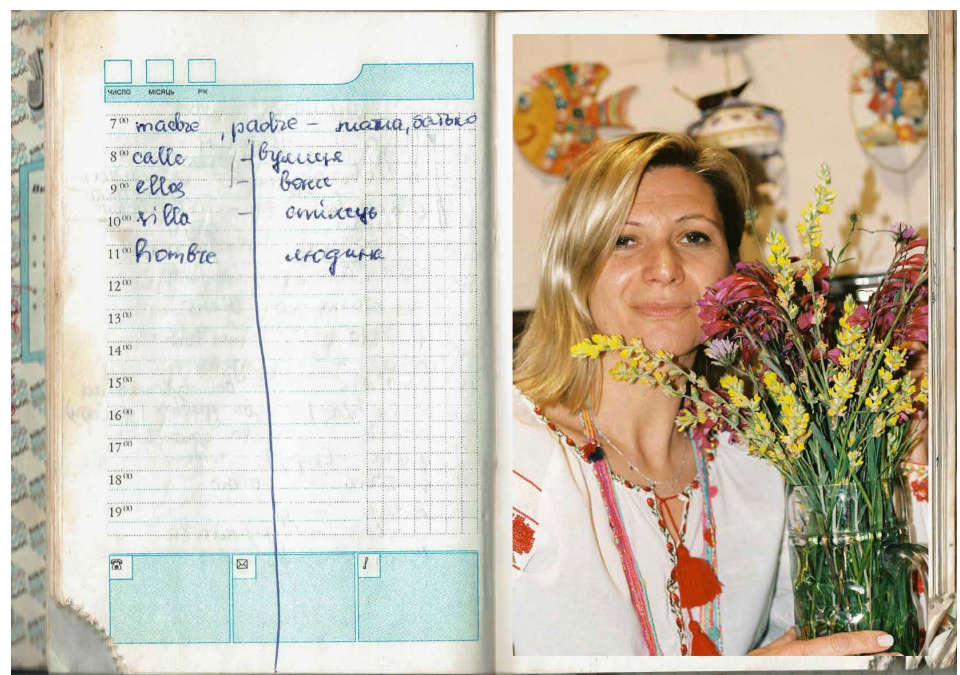 ЧИСЛО МІСЯЦЬ РІК
7 00 madre, padre – мама, батько
8 00 calle – вулиця
9 00 ellos – вони
10 00 silla – стілець
11 00 hombre людина
12 00
13 00
14 00
15 00
16 00
17 00
18 00
19 00
!